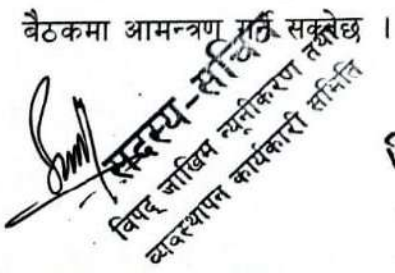 बैठकमा आमन्त्रण गर्न सक्नेछ ।
सदस्य-सचिव
विपद् जोखिम न्यूनीकरण तथा
व्यवस्थापन कार्यकारी समिति